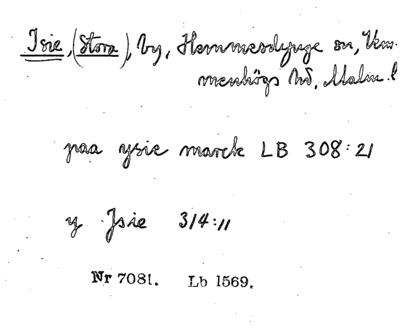 Isie, (Stora), by, Hemmesdynge sn, Vem-
menhögs hd, Malm. l
paa ysie marck LB 308:21
y Jsie 314:11
Nr 7081. Lb 1569.